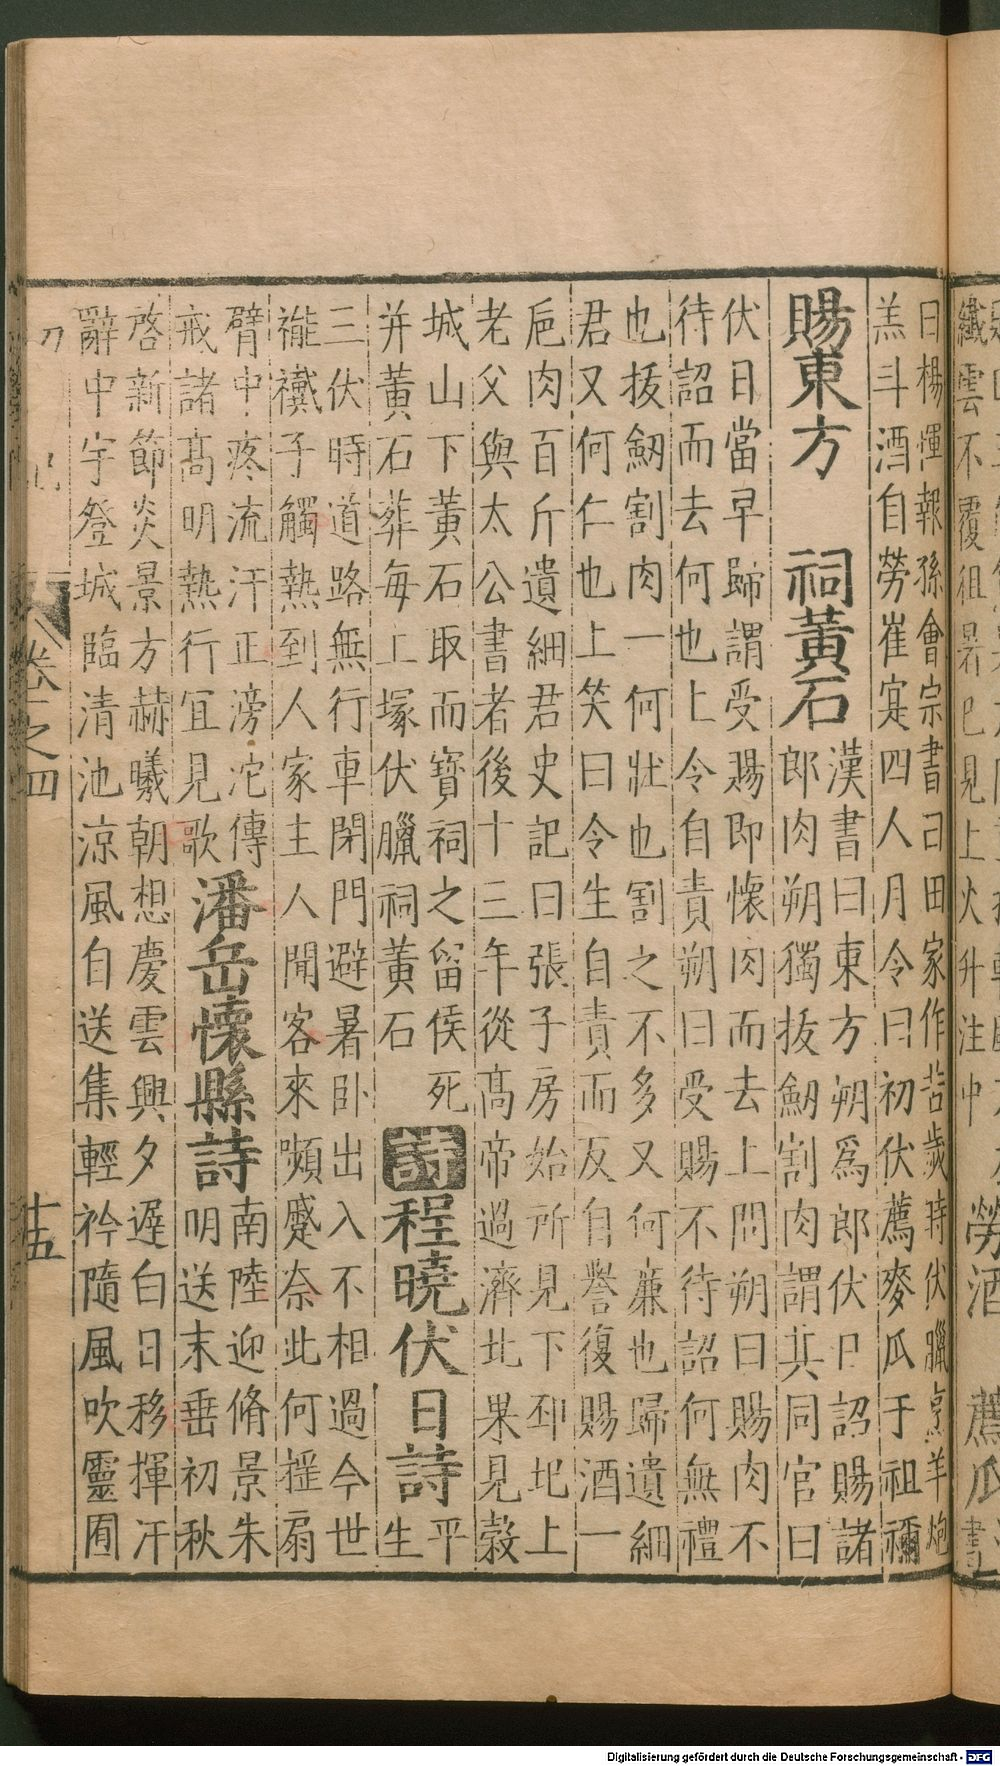 曰楊惲報孫會宗書曰田家作苦歲時伏臘烹羊炮
羔斗酒自勞崔寔四人月令曰初伏薦麥瓜于祖禰
賜東方 祠黃石
漢書曰東方朔爲郎伏日詔賜諸
郎肉朔獨拔劒割肉謂其同官曰
伏日當早歸謂受賜即懷肉而去上問朔曰賜肉不
待詔而去何也上令自責朔曰受賜不待詔何無禮
也拔劒割肉一何壯也割之不多又何廉也歸遺細
君又何仁也上笑曰令生自責而反自譽復賜酒一
巵肉百斤遺細君史記曰張子房始所見下邳圯上
老父與太公書者後十三年從髙帝過濟北果見穀
城山下黃石取而寶祠之留侯死
并黃石葬每上塚伏臘祠黃石
詩
程曉伏日詩
平
生
三伏時道路無行車閉門避暑卧出入不相過今世
褦襶子觸熱到人家主人聞客來嚬蹙奈此何揺扇
臂中疼流汗正滂沱傳
戒諸髙明熱行宜見歌
潘岳懷縣詩
南陸迎脩景朱
明送末垂初秋
啓新節炎景方赫曦朝想慶雲興夕遲白日移揮汗
辭中宇登城臨清池涼風自送集輕衿隨風吹靈圃
卷之四
十五
纖雲不覆徂暑已見上火升注中
勞酒
薦瓜
Digitalisierung gefördert durch die Deutsche Forschungsgemeinschaft - DFG